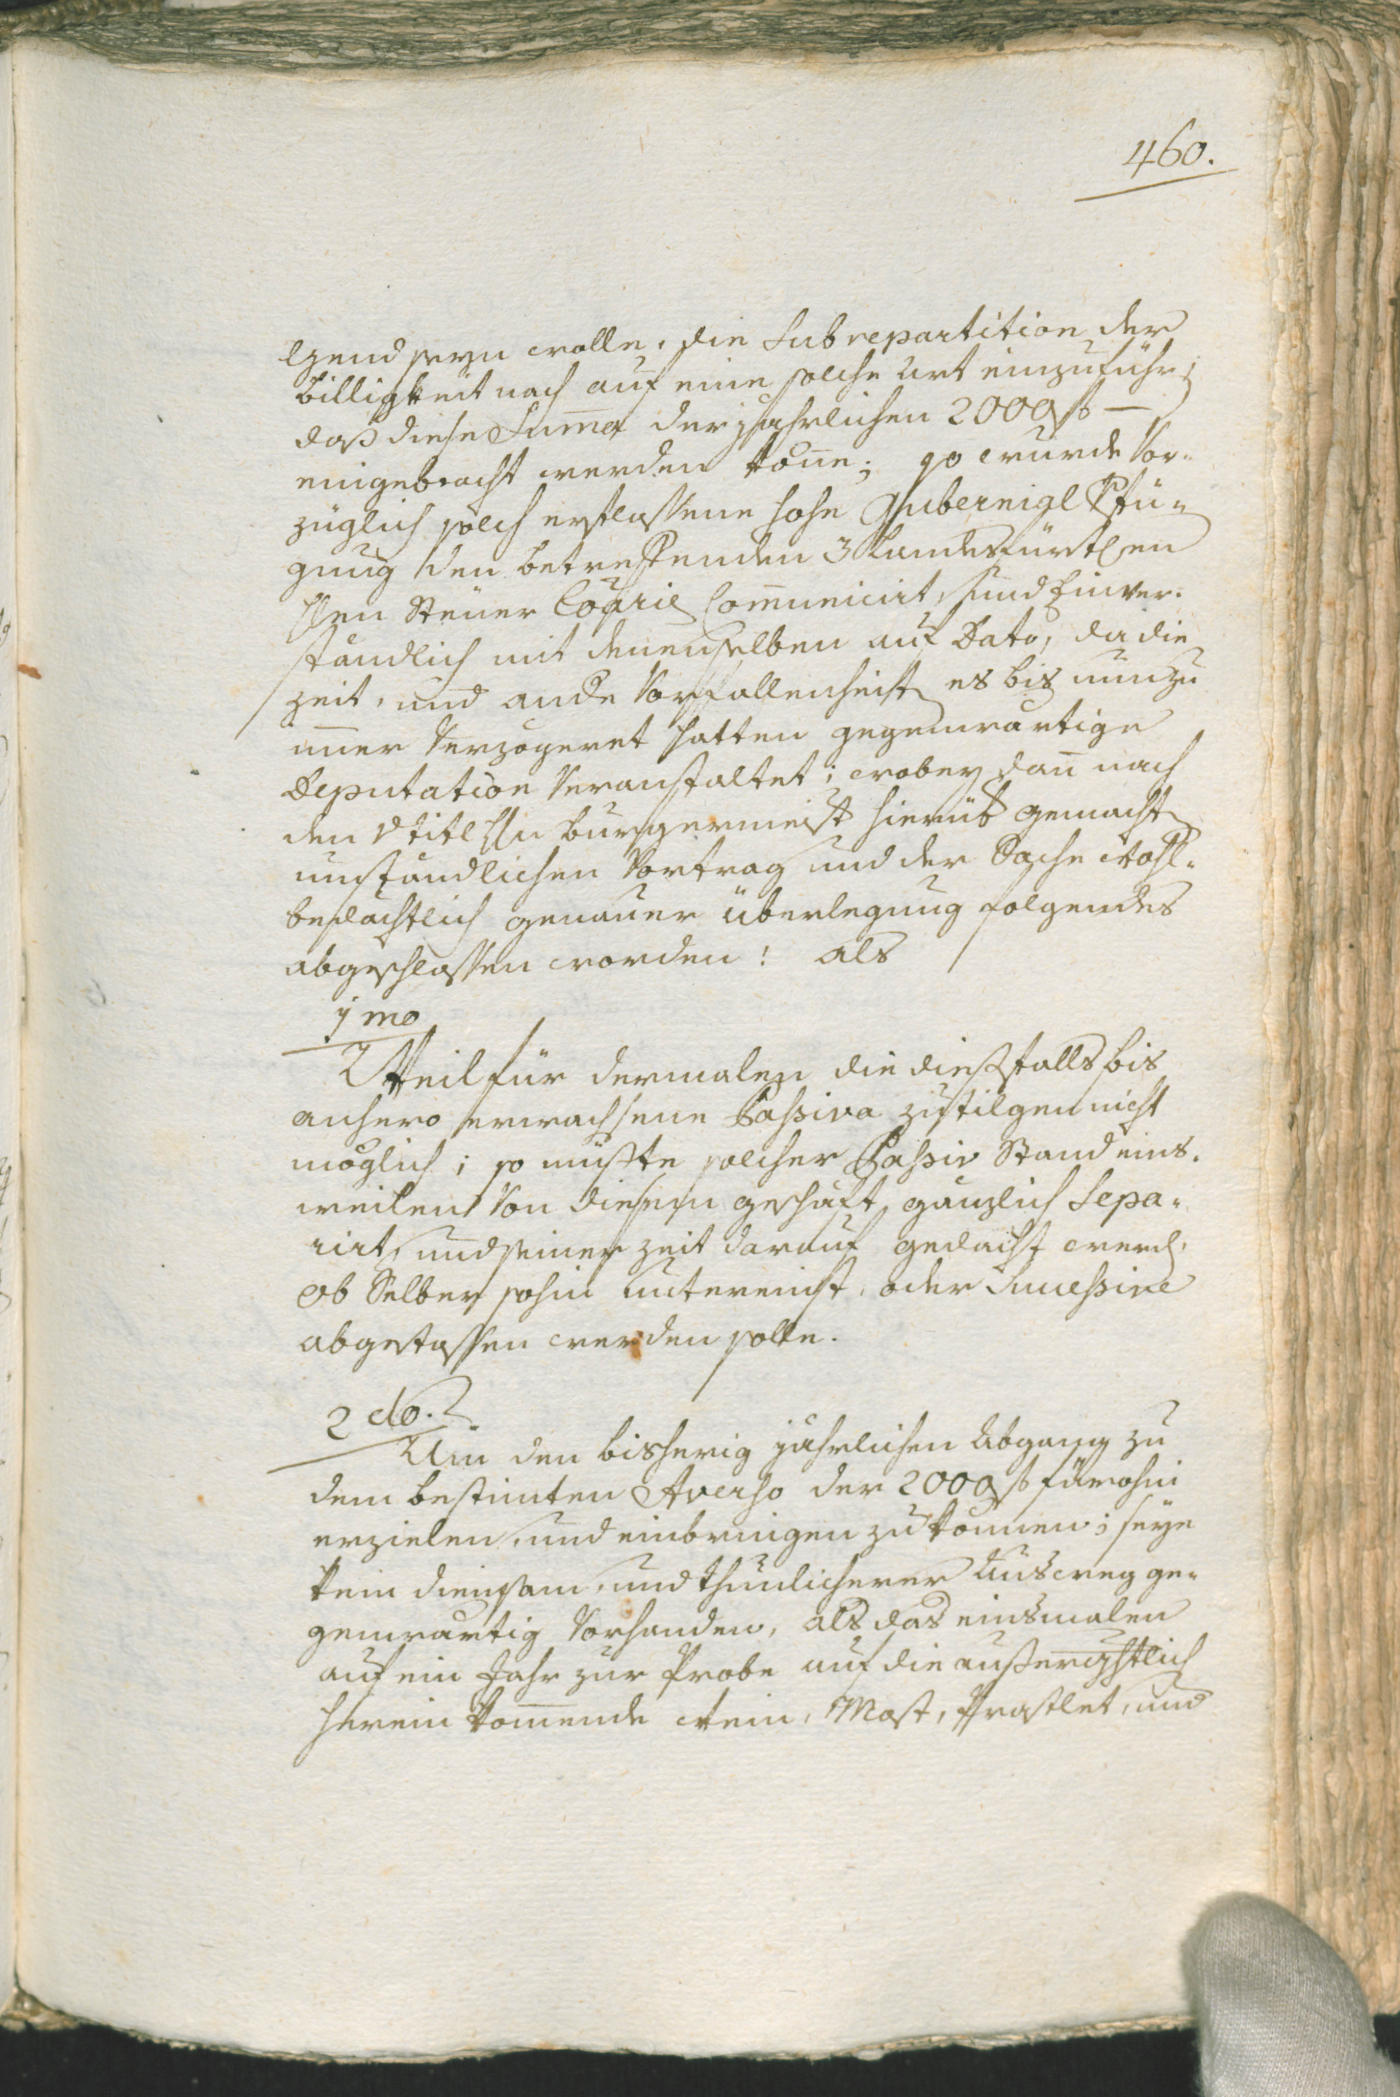 460.
lgend seyn wolle, die Subrepartition der
billigkeit nach auf eine solche Art einzuführ,
daß diese Suma der jährlichen 2000 f —
eingebracht werden köñe; so wurde Vor-
züglich solch erflossene hohe Gubernial Vfü-
gung den betreffenden 3 Landes
Hen Steuer Communicirt, und Einver-
ständlich mit denenselben auf Dato, da die
zeit, und ande Vorfallenheit es bis nunzu
imer Verzögeret hatten gegenwärtige
Deputation Veranstaltet; wobey dañ nach
den Vtitl Hn burgermeist hierüb gemacht
umständlichen Vortrag und der Sache wohl-
bedächtlich genauer überlegung folgendes
abgeschlossen worden! als
1mo
Weil für dermalen die dießfalls bis
anhero erwachsene Passiva zu tilgen nicht
möglich; so müßte solcher Passiv Stand eins-
weilen Von diesem geschäft gänzlich Sepa-
rirt, und seiner zeit darauf gedacht werd,
ob Selber sohin untereinst, oder Successive
abgestossen werden solle.
2do.
Um den bisherig jährlichen Abgang zu
dem bestimten Averso der 2000 f fürohin
erzielen, und einbringen zu können; seye
kein diensam, und thunlicherer Ausweg ge-
genwärtig Vorhanden, als das einsmalen
auf ein Jahr zur Probe auf die außergrichtlich
herein komende Wein, Most, Praslet, und